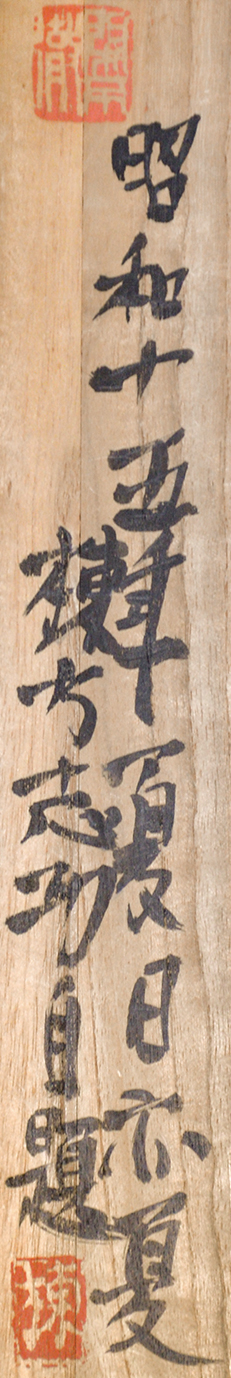 昭和十五年夏日亦夏
棟方志功自題
棟